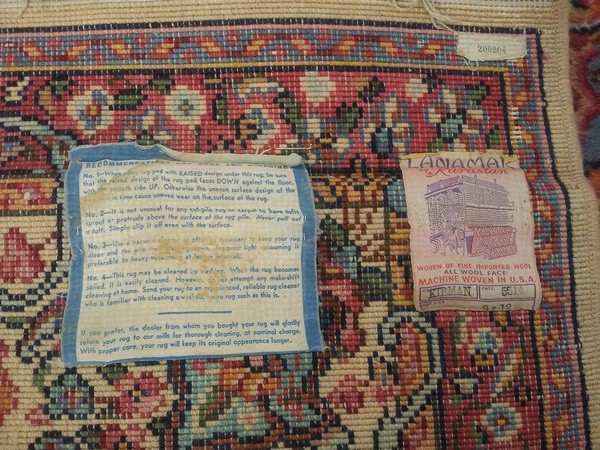 200204
RECOMMENDATIONS
No. 1—When using rug pad with RAISED design under this rug, be sure
that the raised design of the rug pad faces DOWN against the floor,
with smooth side UP. Otherwise the uneven surface design of the
in time cause uneven wear at the surface of the rug.
No. 2—It is not unusual for any cut-pile rug or carpet to have tufts
sprout or protrude above the surface of the rug pile. Never pull out
a tuft. Simply clip it off even with the surface.
No. 3—Use a vacuum necessary to keep your rug
clean and the pile light vacuuming is
preferable to heavy
No. 4—This rug may be cleaned by washing. When the rug becomes
soiled, it is easily cleaned. However, attempt any make-shift
cleaning at home. Send your rug to an experienced, reliable rug cleaner
who is familiar with cleaning a rug such as this is.
If you prefer, the dealer from whom you bought your rug will gladly
return your rug to our mills for thorough cleaning, at nominal charge.
With proper care, your rug will keep its original appearance longer.
LANAMAR
by Karastan
WOVEN OF FINE IMPORTED WOOL
ALL WOOL FACE
MACHINE WOVEN IN U.S.A.
KIRMAN 551